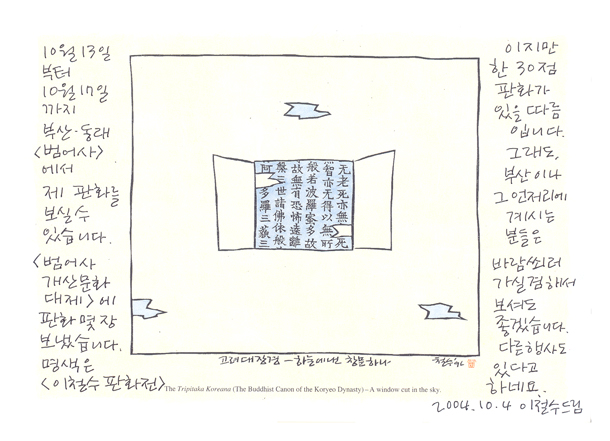 10월 13일
부터
10월 17일
까지
부산·동래
<범어사>
에서
제 판화를
보실 수
있습니다.
<범어사
개산문화
대제>에
판화 몇 장
보냈습니다.
명색은
<이철수 판화전>
이지만
한 30점
판화가
있을 따름
입니다.
그래도,
부산이나
그 언저리에
계시는
분들은
바람 쐬러
가실 겸 해서
보셔도
좋겠습니다.
다른 행사도
있다고
하네요.
2004.10.4 이철수 드림
无老死亦無死
智亦无得以無所
般若波羅蜜多故
故無有恐怖遠離
槃三世諸佛依般
阿多羅三藐三
고려대장경 – 하늘에 나온 창문 하나
철수
The Tripitaka Koreana (The Buddhist Canon of the Koryeo Dynasty) – A window cut in the sky.